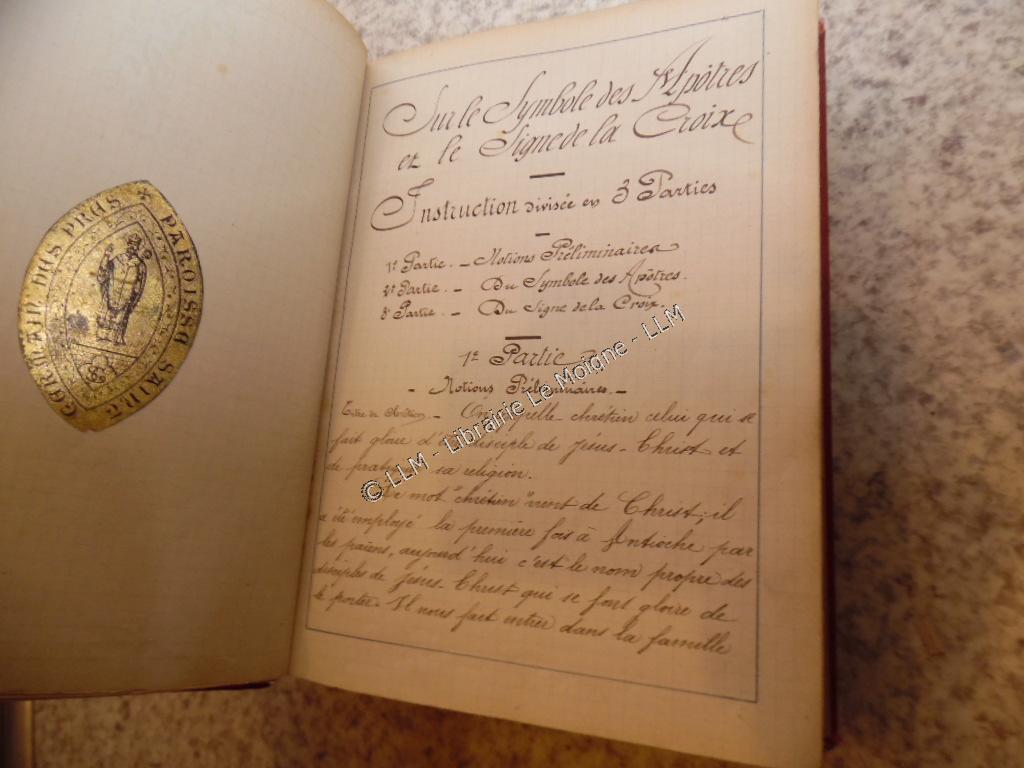 PAROISSE SAINT GERMAIN DES PRÉS
Sur le Symbole des Apôtres
et le Signe de la Croix
Instruction divisée en 3 Parties
1e Partie. - Notions Préliminaires
2e Partie. - Du Symbole des Apôtres.
3e Partie. - Du Signe de la Croix.
1e Partie
- Notions Préliminaires. -
- On appelle chrétien celui qui se
fait gloire d' disciple de Jésus-Christ et
de sa religion.
Le mot "chrétien" vient de Christ; il
a été employé la première fois à Antioche par
les païens, aujourd'hui c'est le nom propre des
disciples de Jésus-Christ qui se font gloire de
le porter. Il nous fait entrer dans la famille
© LLM - Librairie Le Moigne - LLM